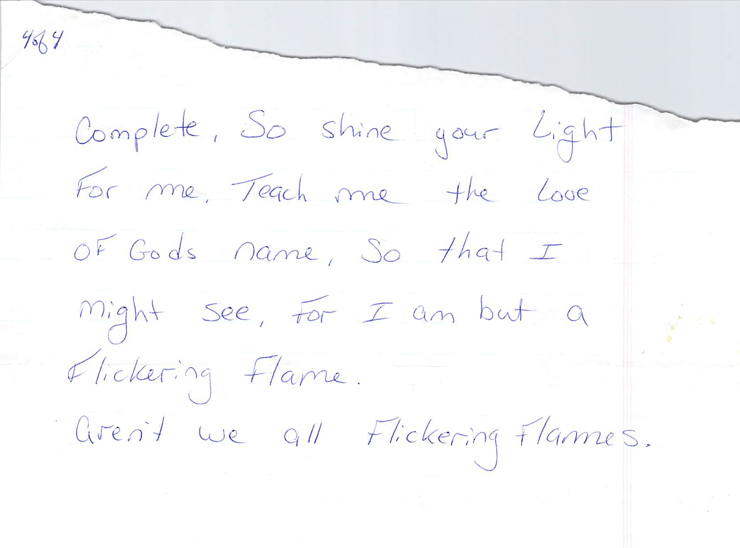 4 of 4
Complete, So shine your Light
For me, Teach me the Love
OF Gods name, So that I
might see, For I am but a
Flickering Flame.
Aren't we all Flickering Flames.